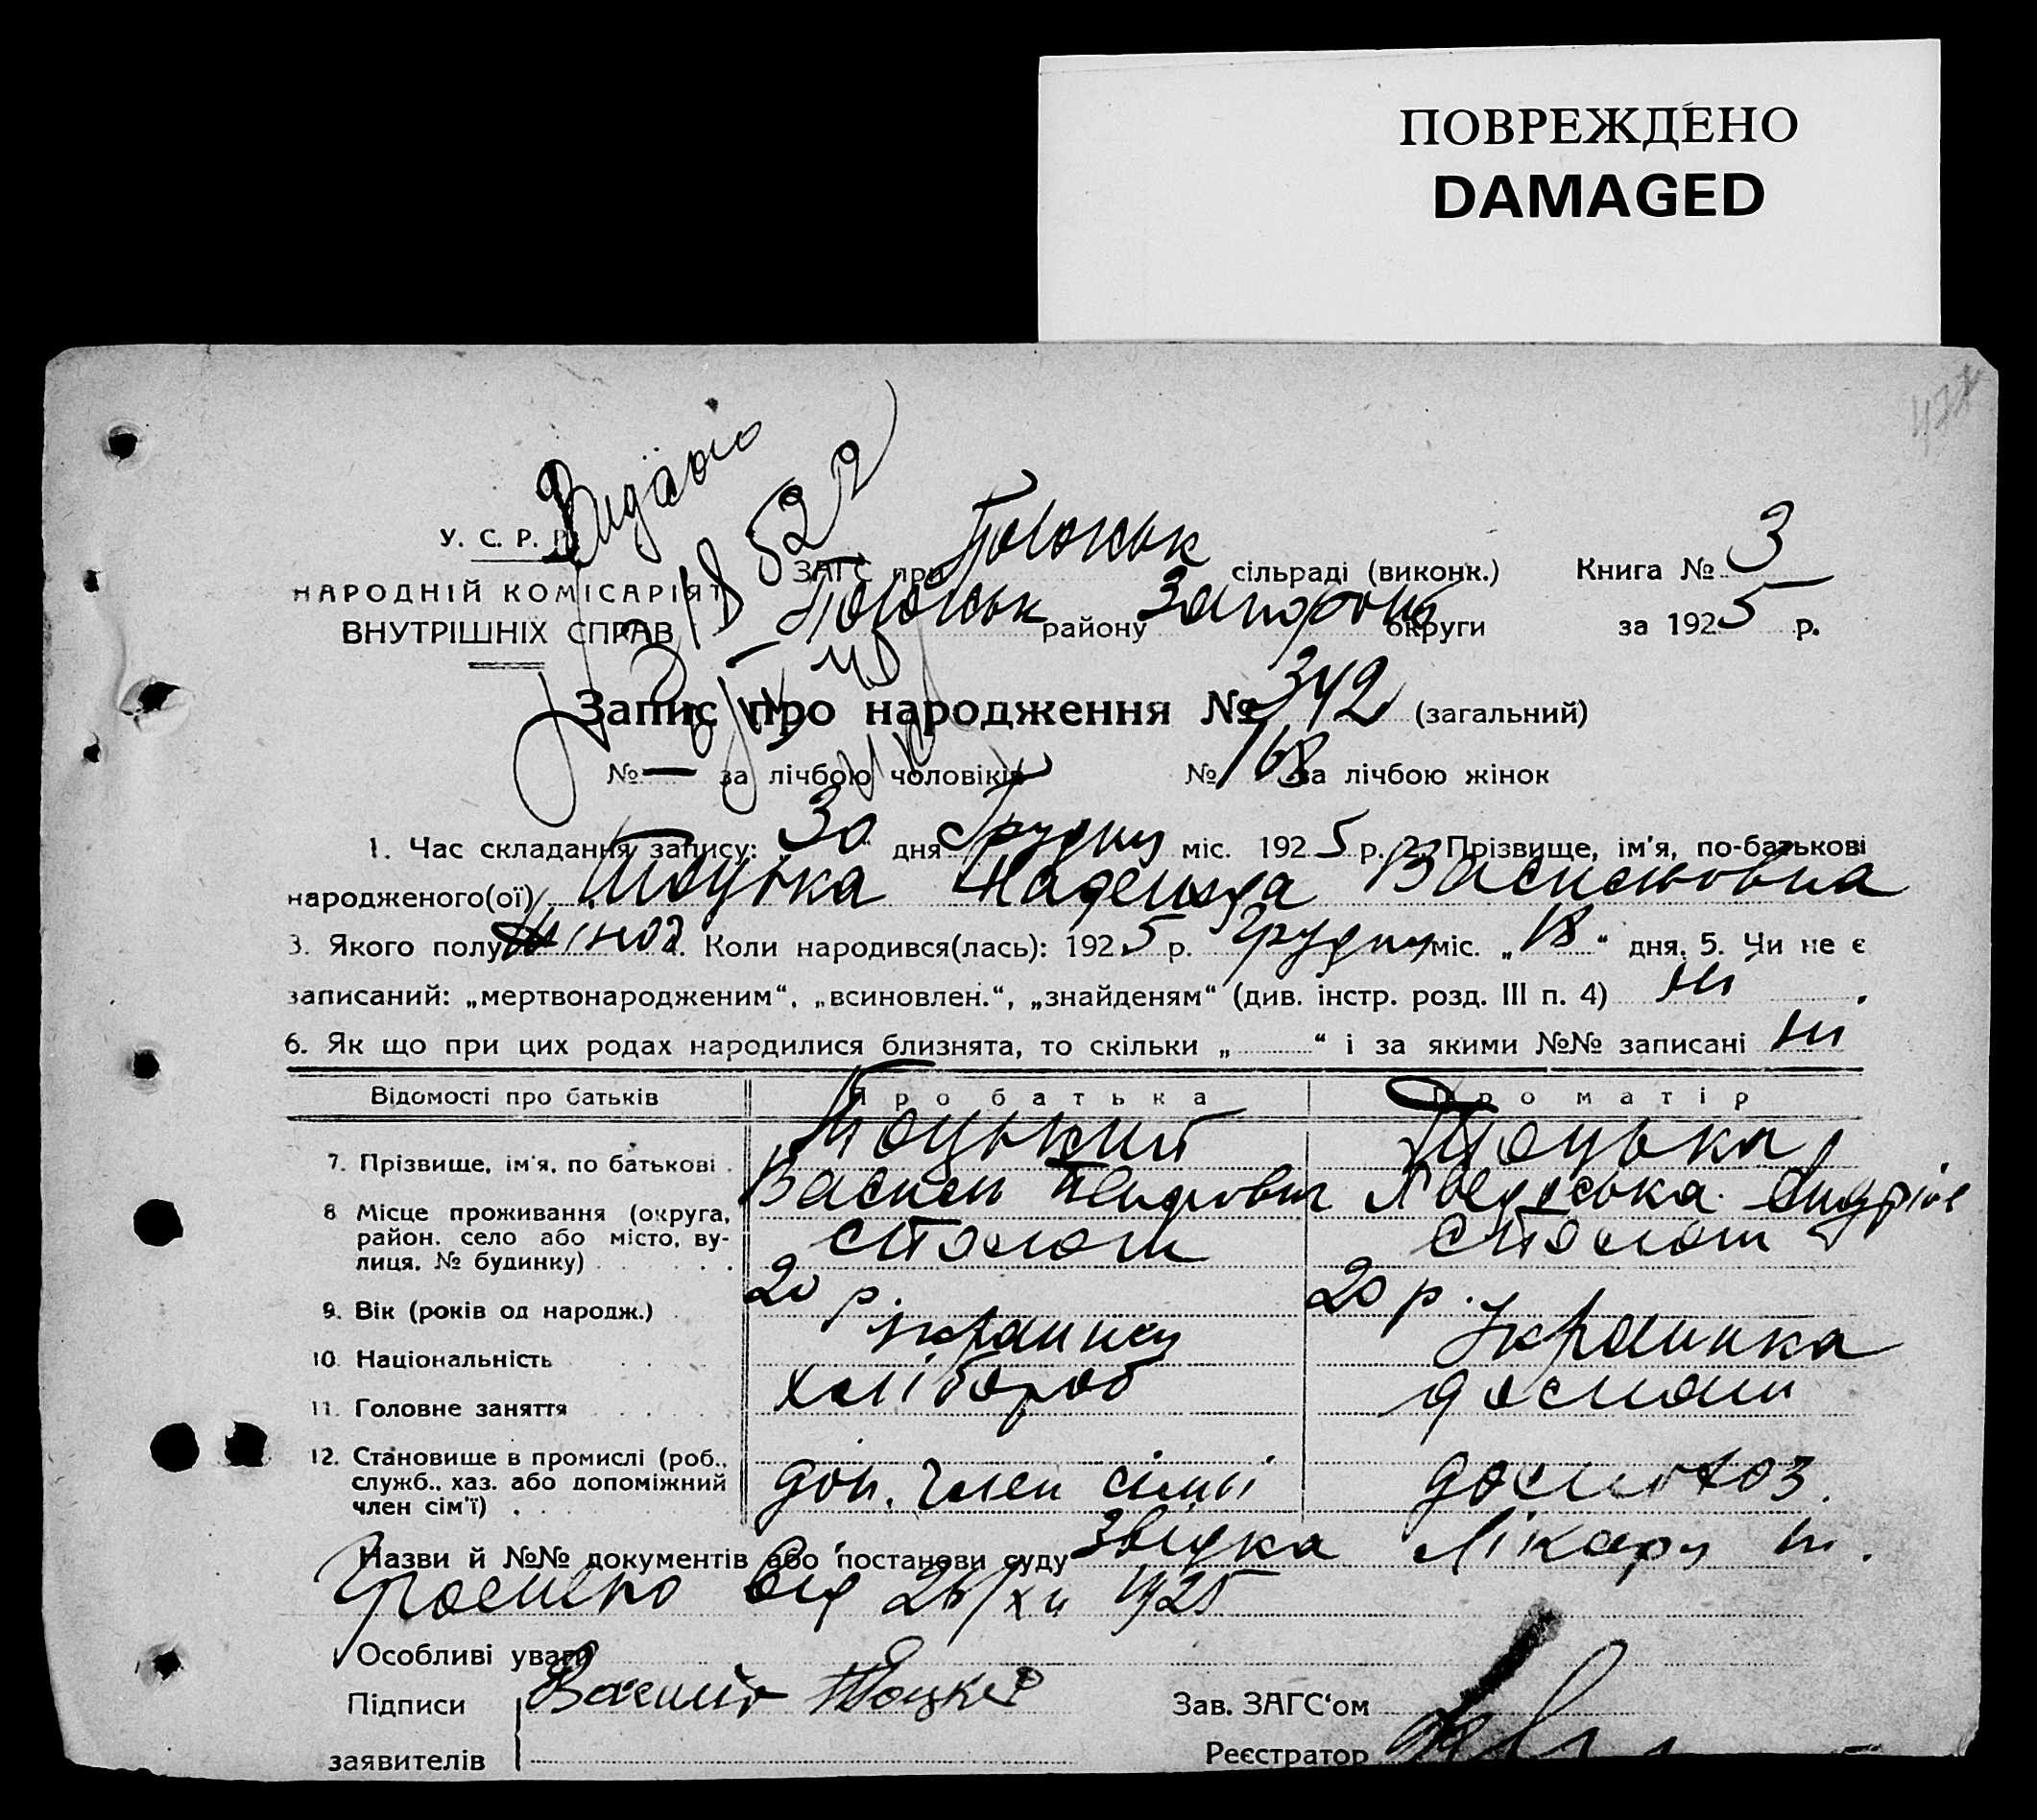 ПОВРЕЖДЕНО
DAMAGED
Видано
У. С. Р. Р.
ЗАГС при Пологськ сільраді (виконк.) Книга № 3
НАРОДНІЙ КОМІСАРІЯТ
ВНУТРІШНІХ СПРАВ
Пологськ району Запоріж округи за 1925 р.
Запис про народження № 342 (загальний)
№ — за лічбою чоловіків № 168 за лічбою жінок
1. Час складання запису: 30 дня Грудня міс. 1925 р. 2. Прізвище, ім'я, по-батькові
народженого(ої) Тоцька Надежда Васильовна
3. Якого полу жіноч 4. Коли народився(лась): 1925 р. Грудня міс. „18“ дня. 5. Чи не є
записаний: „мертвонародженим“, „всиновлен.“, „знайденям“ (див. інстр. розд. III п. 4) ні.
6. Як що при цих родах народилися близнята, то скільки „ “ і за якими №№ записані ні
Відомості про батьків Про батька Про матір
7. Прізвище, ім'я, по батькові Тоцький Василь Тоцька
8 Місце проживання (округа, район, село або місто, вулиця, № будинку)
9. Вік (років од народж.) 20 р. 20 р.
10. Національність українец Українка
11. Головне заняття хлібороб домаш
12. Становище в промислі (роб., служб., хаз. або допоміжний член сім'ї) доп. член сімьі
Назви й №№ документів або постанови суду Звідка лікаря
від 26/XII 1925
Особливі уваги
Підписи Василь Тоцкий Зав. ЗАГС'ом
заявителів Реєстратор